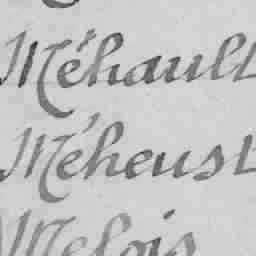 Méhault
Méheust
Melois